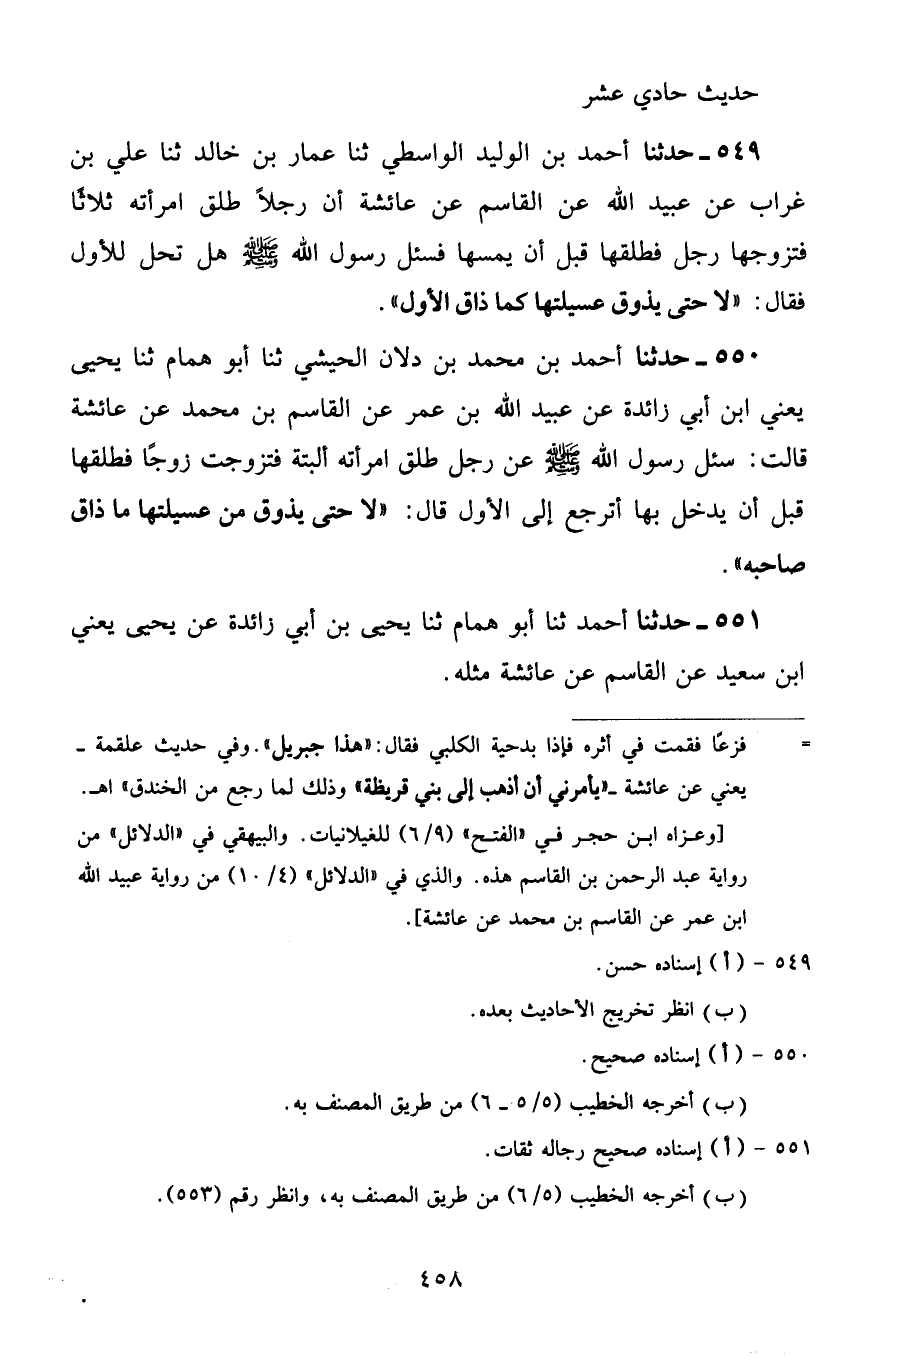 حديث حادي عشر
٥٤٩ ـ حدثنا أحمد بن الوليد الواسطي ثنا عمار بن خالد ثنا علي بن
غراب عن عبيد الله عن القاسم عن عائشة أن رجلاً طلق امرأته ثلاثًا
فتزوجها رجل فطلقها قبل أن يمسها فسئل رسول الله ﷺ هل تحل للأول
فقال: «لا حتى يذوق عسيلتها كما ذاق الأول».
٥٥٠ ـ حدثنا أحمد بن محمد بن دلان الحيشي ثنا أبو همام ثنا يحيى
يعني ابن أبي زائدة عن عبيد الله بن عمر عن القاسم بن محمد عن عائشة
قالت: سئل رسول الله ﷺ عن رجل طلق امرأته ألبتة فتزوجت زوجًا فطلقها
قبل أن يدخل بها أترجع إلى الأول قال: «لا حتى يذوق من عسيلتها ما ذاق
صاحبه».
٥٥١ ـ حدثنا أحمد ثنا أبو همام ثنا يحيى بن أبي زائدة عن يحيى يعني
ابن سعيد عن القاسم عن عائشة مثله.
= فزعًا فقمت في أثره فإذا بدحية الكلبي فقال: «هذا جبريل». وفي حديث علقمة ـ
يعني عن عائشة ـ «يأمرني أن أذهب إلى بني قريظة» وذلك لما رجع من الخندق» اهـ.
[وعزاه ابن حجر في «الفتح» (٦/٩) للغيلانيات. والبيهقي في «الدلائل» من
رواية عبد الرحمن بن القاسم هذه. والذي في «الدلائل» (١٠/٤) من رواية عبيد الله
ابن عمر عن القاسم بن محمد عن عائشة].
٥٤٩ - (أ) إسناده حسن.
(ب) انظر تخريج الأحاديث بعده.
٥٥٠ - (أ) إسناده صحيح.
(ب) أخرجه الخطيب (٥/٥ ـ ٦) من طريق المصنف به.
٥٥١ - (أ) إسناده صحيح رجاله ثقات.
(ب) أخرجه الخطيب (٦/٥) من طريق المصنف به، وانظر رقم (٥٥٣).
٤٥٨